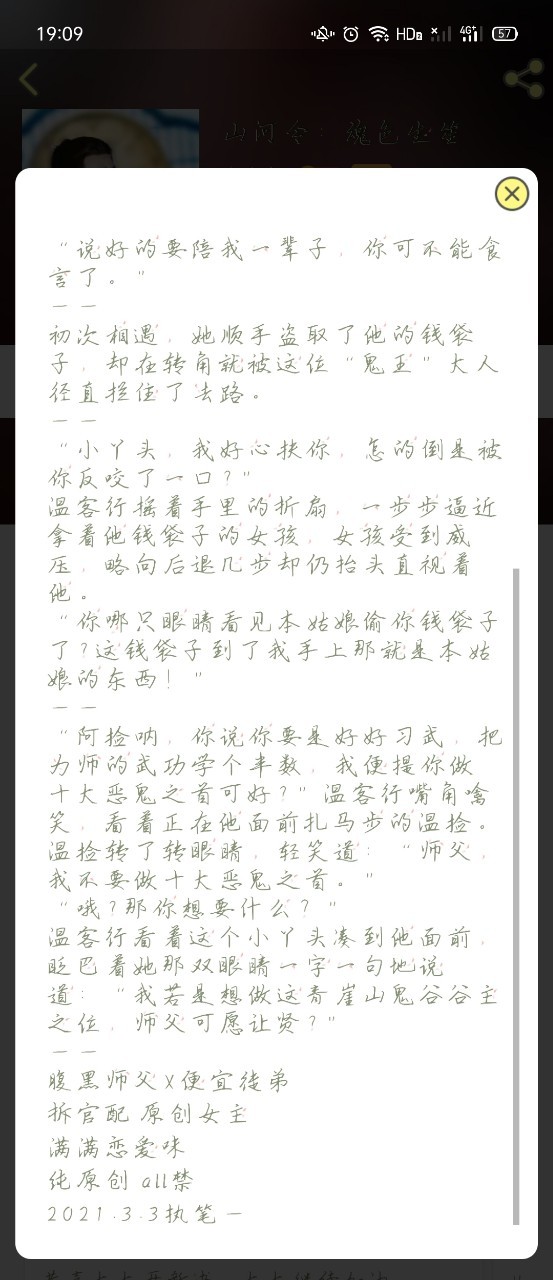 19:09
HD
4G+
57
山河令：
"说好的要陪我一辈子，你可不能食
言了。"
——
初次相遇，她顺手盗取了他的钱袋
子，却在转角就被这位"鬼王"大人
径直拦住了去路。
——
"小丫头，我好心扶你，怎的倒是被
你反咬了一口？"
温客行摇着手里的折扇，一步步逼近
拿着他钱袋子的女孩，女孩受到威
压，略向后退几步却仍抬头直视着
他。
"你哪只眼睛看见本姑娘偷你钱袋子
了？这钱袋子到了我手上那就是本姑
娘的东西！"
——
"阿捡呐，你说你要是好好习武，把
为师的武功学个半数，我便提你做
十大恶鬼之首可好？"温客行嘴角噙
笑，看着正在他面前扎马步的温捡。
温捡转了转眼睛，轻笑道："师父，
我不要做十大恶鬼之首。"
"哦？那你想要什么？"
温客行看着这个小丫头凑到他面前，
眨巴着她那双眼睛一字一句地说
道："我若是想做这青崖山鬼谷谷主
之位，师父可愿让贤？"
——
腹黑师父x便宜徒弟
拆官配 原创女主
满满恋爱味
纯原创 all禁
2021.3.3执笔—